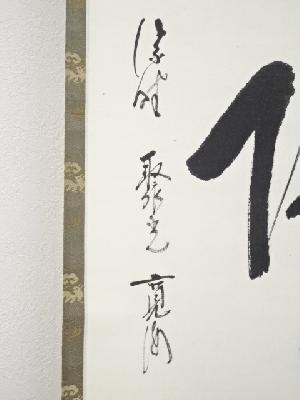 紫野 聚光 寛海